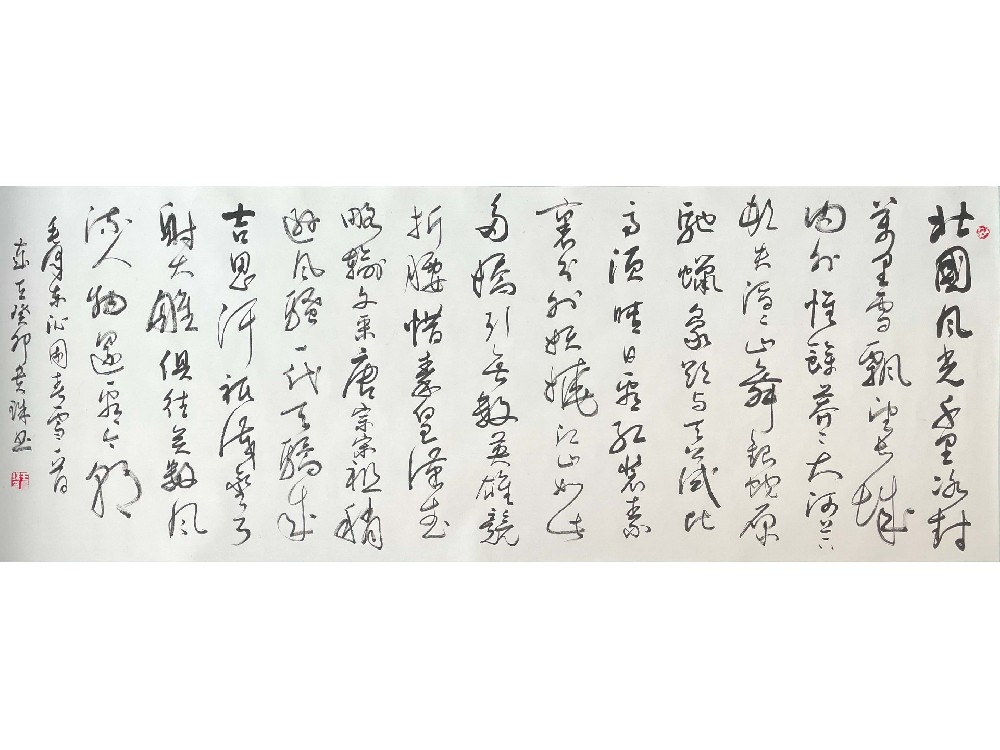 北國風光千里冰封
萬里雪飄望長城
内外惟餘莽々大河上下
頓失滔々山舞銀蛇原
馳蠟象欲与天公試比
高須晴日看紅裝素
裹分外妖嬈江山如此
多嬌引無數英雄競
折腰惜秦皇漢武
略輸文采唐宗宋祖稍
遜風騷一代天驕成
吉思汗祇識彎弓
射大雕俱往矣數風
流人物還看今朝
毛澤東沁園春雪一首
歲在癸卯